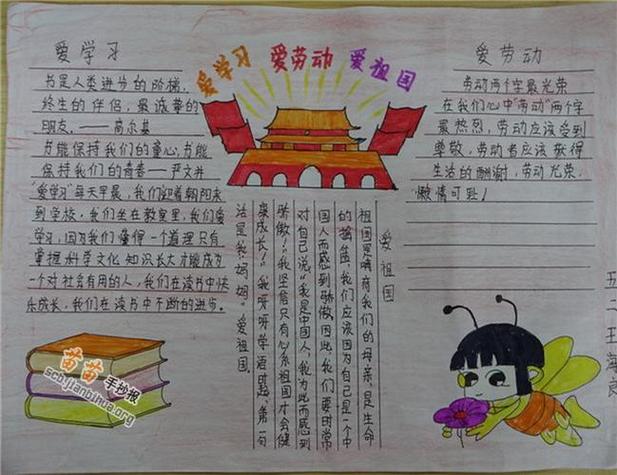 爱学习 爱劳动 爱祖国
爱学习
书是人类进步的阶梯,
终生的伴侣,最诚挚的
朋友。——高尔基
书能保持我们的童心;书能
保持我们的青春——严文井
“爱学习”每天早晨,我们迎着朝阳来
到学校,我们坐在教室里,我们爱
学习,因为我们懂得一个道理只有
掌握科学文化知识长大才能成为
一个对社会有用的人,我们在读书中快
乐成长,我们在读书中不断的进步。
爱祖国
祖国是哺育我们的母亲,是生命
的摇篮,我们应该因为自己是一个中
国人而感到骄傲。因此,我们要时常
对自己说“我是中国人,我为此而感到
骄傲!”我坚信只有心系祖国才会健
康成长!“我呀呀学语时起”第一句
话是我“妈妈”爱祖国.
爱劳动
劳动两个字最光荣
在我们心中“劳动”两个字
最热烈,劳动应该受到
尊敬,劳动者应该获得
生活的酬谢,劳动光荣,
懒惰可耻!
五二王海良
苗苗
手抄报
scb.jianbihua.org